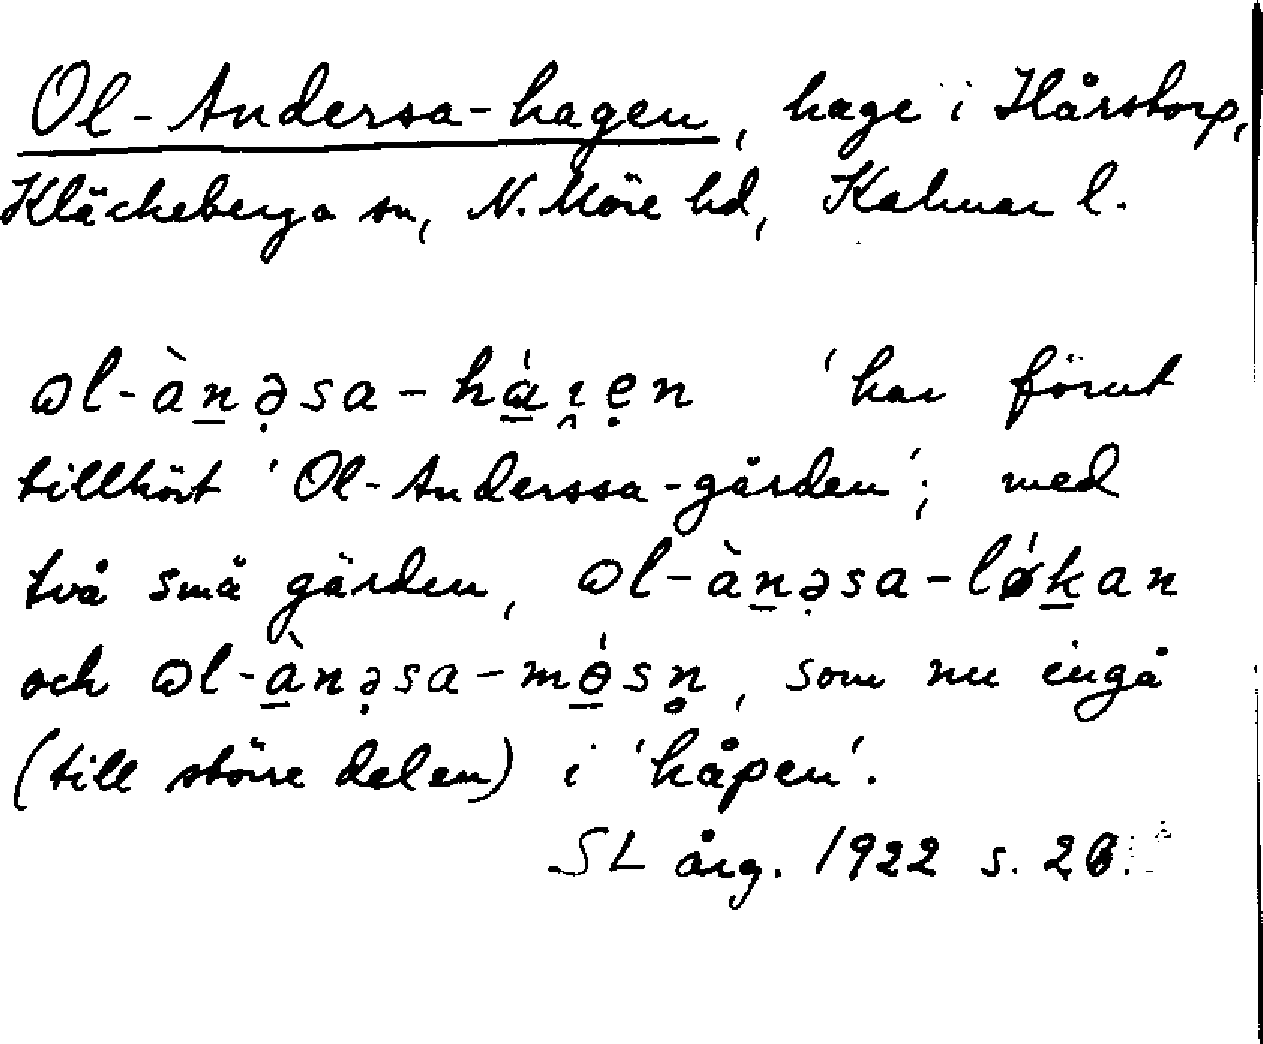 Ol-Andersa-hagen, hage i Hårstorp,
Kläckeberga sn, N. Möre hd, Kalmar l.
ɷl-àn̲ə̣sa-há̲ɪ̯ẹn 'har förut
tillhört 'Ol-Anderssa-gården'; med
två små gärden, ɷl-àn̲ə̣sa-lǿk̲an
och ɷl-à̲nə̣sa-mɵ̲́sn̥, som nu ingå
(till större delen) i 'håpen'.
SL årg. 1922 s. 26.